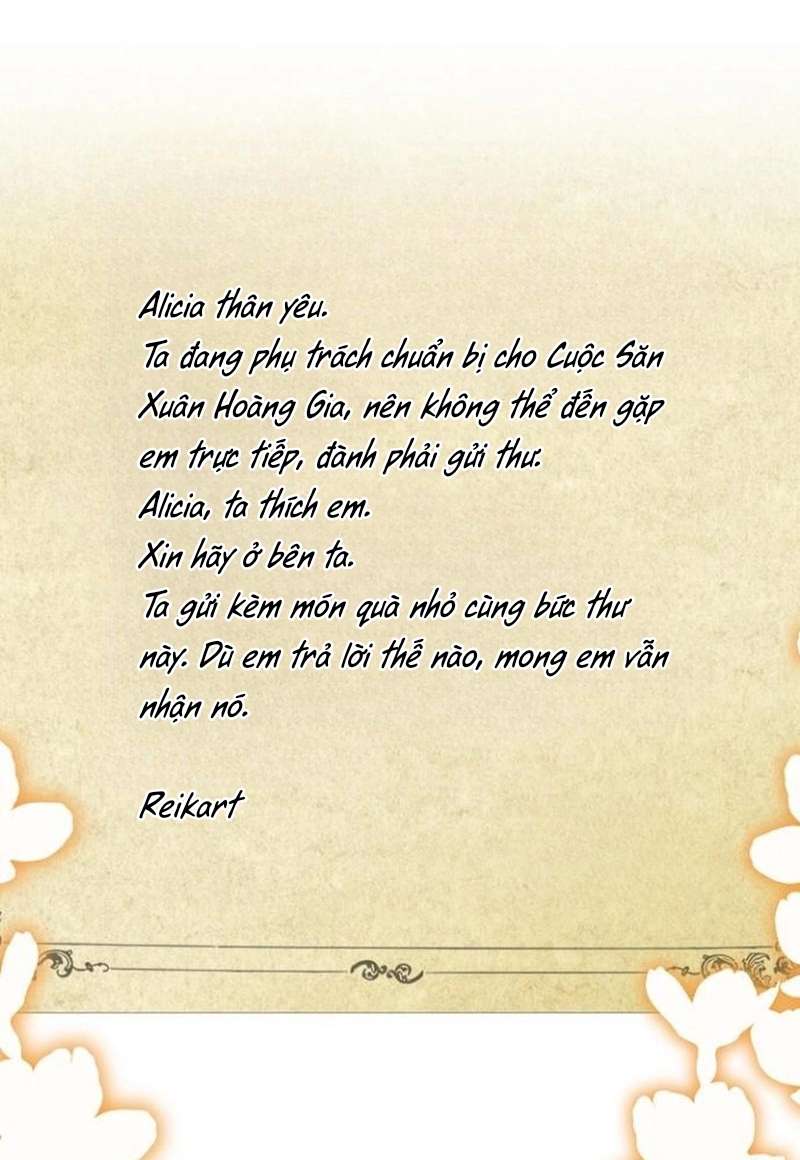 Alicia thân yêu.
Ta đang phụ trách chuẩn bị cho Cuộc Săn
Xuân Hoàng Gia, nên không thể đến gặp
em trực tiếp, đành phải gửi thư.
Alicia, ta thích em.
Xin hãy ở bên ta.
Ta gửi kèm món quà nhỏ cùng bức thư
này. Dù em trả lời thế nào, mong em vẫn
nhận nó.
Reikart